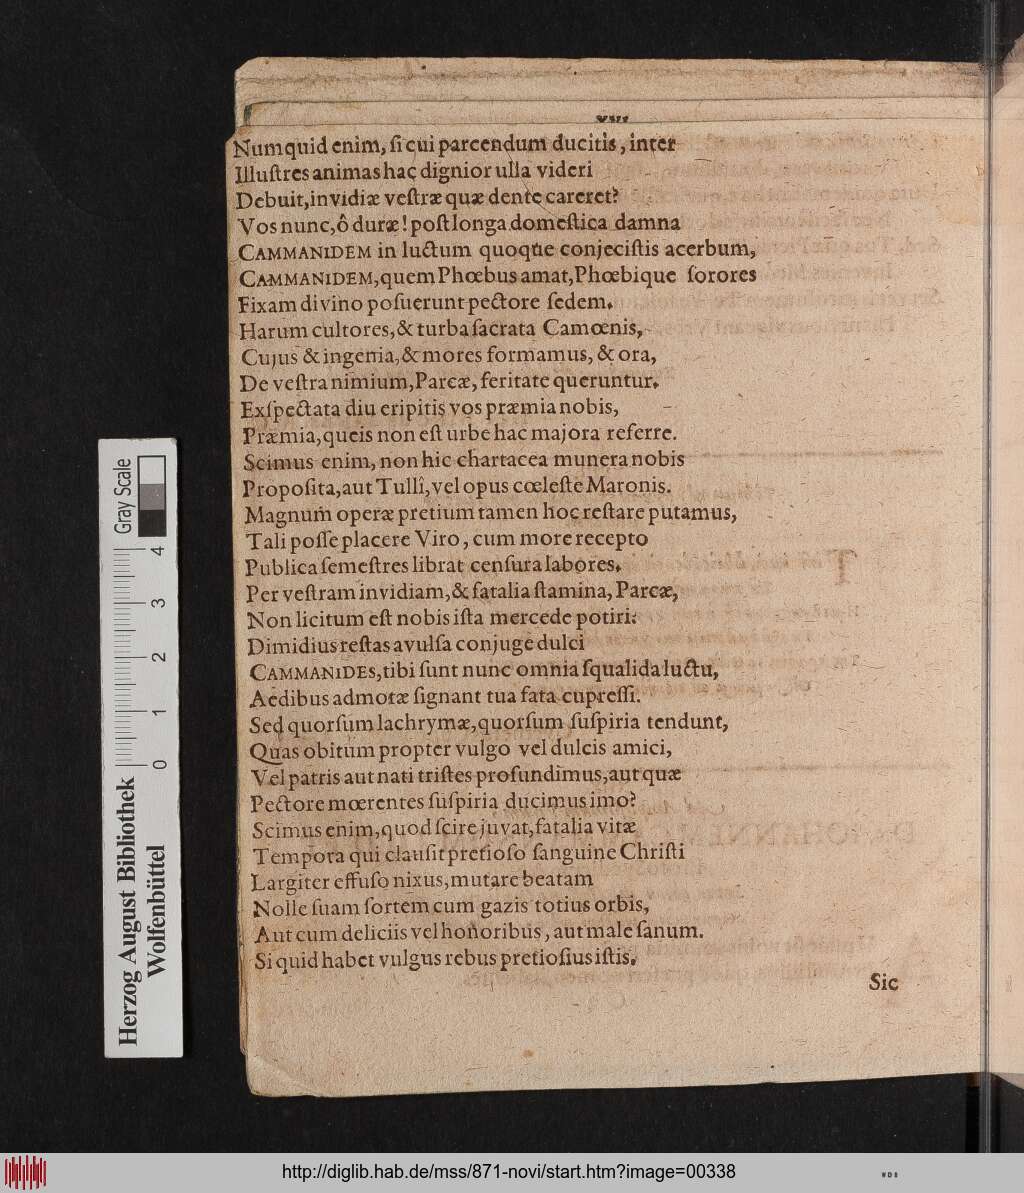 Numquid enim, ſi cui parcendum ducitis, inter
Illuſtres animas hac dignior ulla videri
Debuit, invidiæ veſtræ quæ dente careret?
Vos nunc, ô duræ! poſt longa domeſtica damna
CAMMANIDEM in luctum quoque conjeciſtis acerbum,
CAMMANIDEM, quem Phœbus amat, Phœbique ſorores
Fixam divino poſuerunt pectore ſedem.
Harum cultores, & turba ſacrata Camœnis,
Cujus & ingenia, & mores formamus, & ora,
De veſtra nimium, Parcæ, feritate queruntur.
Exſpectata diu eripitis vos præmia nobis,
Præmia, queis non eſt urbe hac majora referre.
Scimus enim, non hic chartacea munera nobis
Propoſita, aut Tullî, vel opus cœleſte Maronis.
Magnum operæ pretium tamen hoc reſtare putamus,
Tali poſſe placere Viro, cum more recepto
Publica ſemeſtres librat cenſura labores.
Per veſtram invidiam, & fatalia ſtamina, Parcæ,
Non licitum eſt nobis iſta mercede potiri:
Dimidius reſtas avulſa conjuge dulci
CAMMANIDES, tibi ſunt nunc omnia ſqualida luctu,
Aedibus admotæ ſignant tua fata cupreſſi.
Sed quorſum lachrymæ, quorſum ſuſpiria tendunt,
Quas obitum propter vulgo vel dulcis amici,
Vel patris aut nati triſtes profundimus, aut quæ
Pectore mœrentes ſuſpiria ducimus imo?
Scimus enim, quod ſcire juvat, fatalia vitæ
Tempora qui clauſit pretioſo ſanguine Chriſti
Largiter effuſo nixus, mutare beatam
Nolle ſuam ſortem cum gazis totius orbis,
Aut cum deliciis vel honoribus, aut male ſanum.
Si quid habet vulgus rebus pretioſius iſtis.
Sic
Gray Scale
0 1 2 3 4
Herzog August Bibliothek
Wolfenbüttel
http://diglib.hab.de/mss/871-novi/start.htm?image=00338